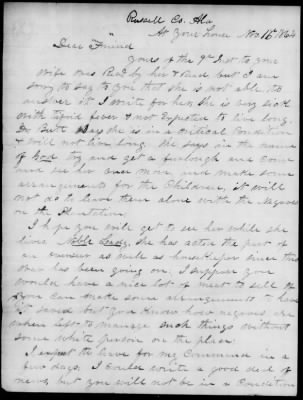 Russell Co. Ala
At Your House Nov 16th 1864
Dear Friend
Yours of the 9th Inst to your
Wife was Recd by her & Read but I am
sorry to say to you that she is not able to
answer it I write for her she is very sick
with tipoid fever & not Expected to live long.
Dr says she is in a critical Condition
& will not live long. She says in the name
of God try and get a furlough and Come
and see her once more, and make some
arrangements for the Children, it will
not do to leave them alone with the Negroes
on the Plantation
I hope you will get to see her while she
lives Noble Lady, she has acted the part of
an overseer as well as housekeeper since this
War has been going on, I suppose you
would have a nice lot of meat to sell if
you Can make some arrangements to have
it saved but you Know how negroes are
when left to manage such things without
some white person on the place
I expect to leave for my Command in a
few days. I Could write a good deal of
news, but you will not be in a Condition